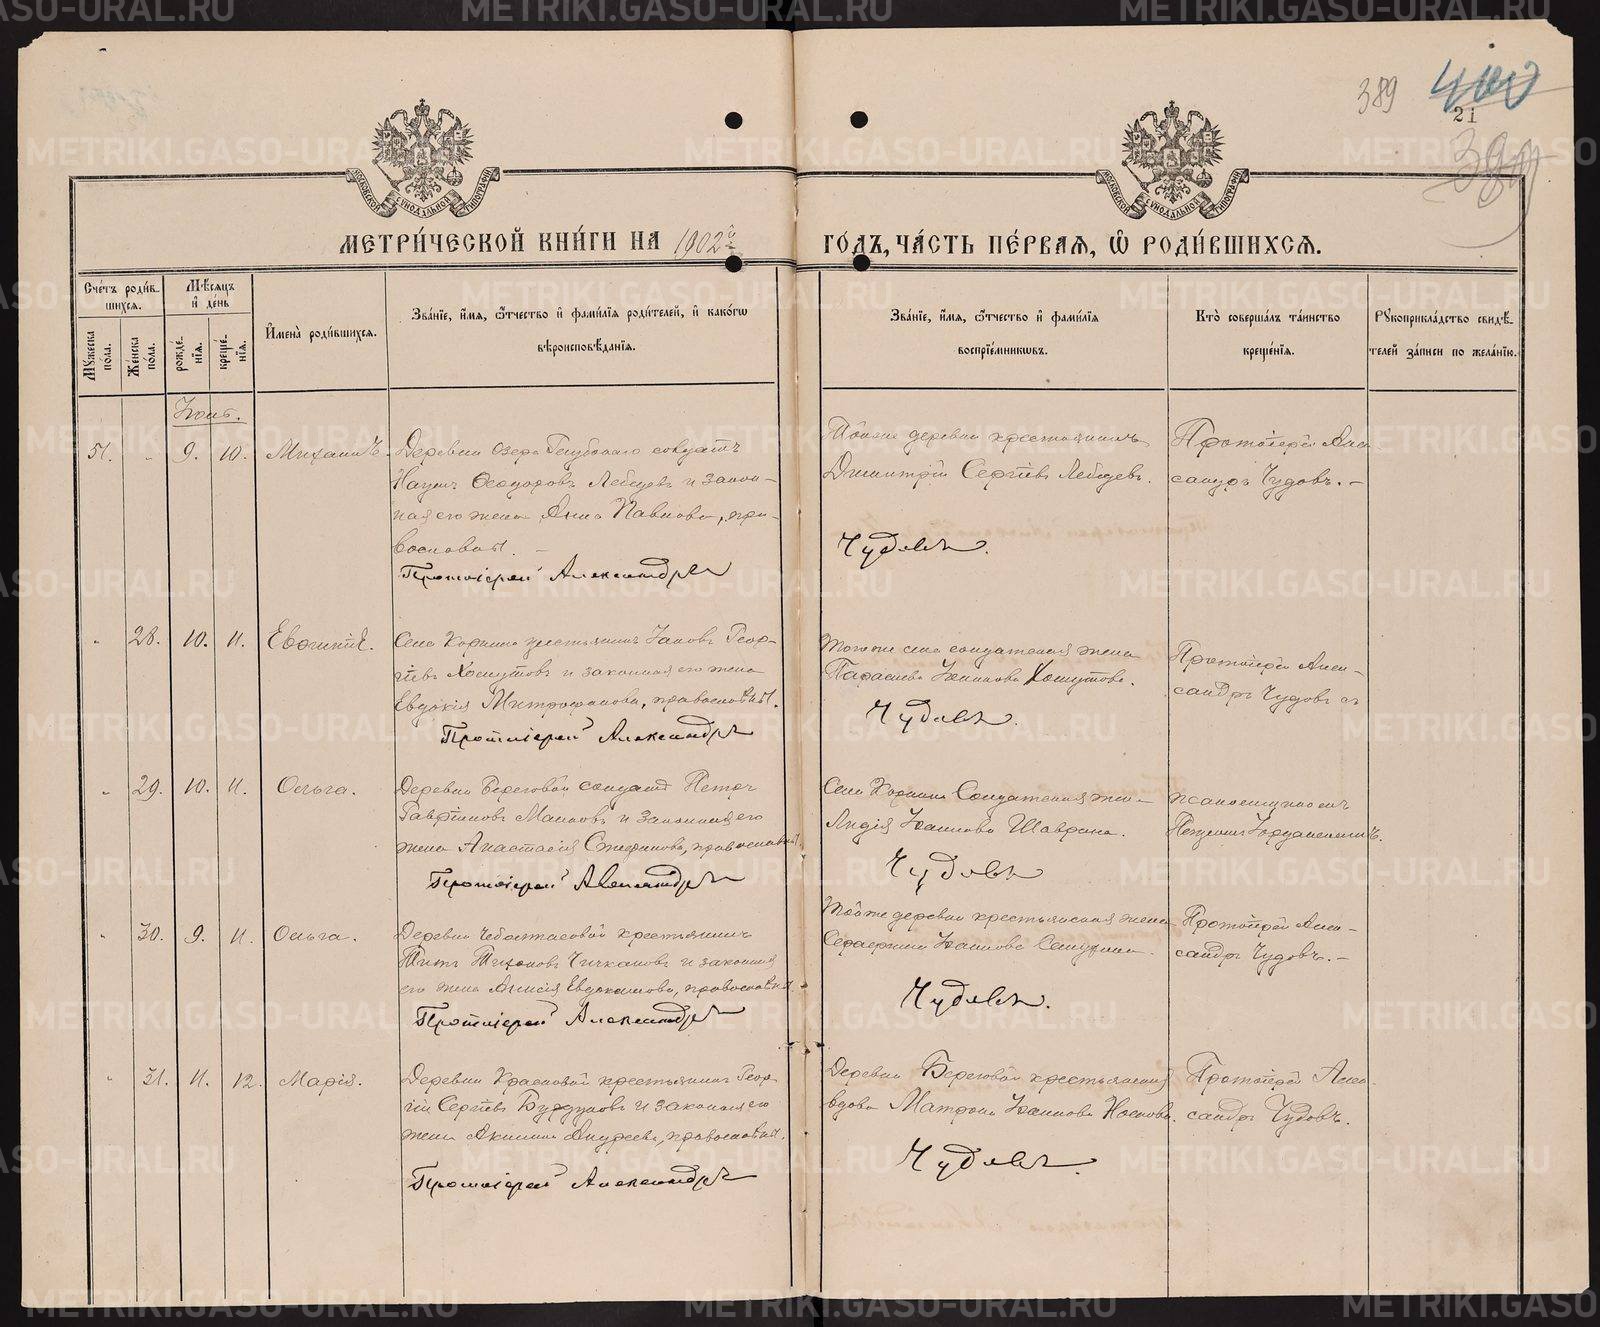 389
400
21
МЕТРИ́ЧЕСКОЙ КНИ́ГИ НА 1902й
ГО́ДЪ, ЧА́СТЬ ПЕ́РВАЯ, Ѡ РОДИ́ВШИХСЯ.
МОСКОВСКОЙ СѴНОДАЛЬНОЙ ТИПОГРАФІИ
МОСКОВСКОЙ СѴНОДАЛЬНОЙ ТИПОГРАФІИ
Сче́тъ роди́в-
шихся.
Мꙋ́жеска по́ла.
Же́нска по́ла.
Мѣ́сяцъ
и҆ де́нь
рожде́-
нїя.
креще́-
нїя.
И҆мена̀ роди́вшихся.
Зва́нїе, и҆́мя, ѻ҆́тчество и҆ фами́лїя роди́телей, и҆ како́гѡ
вѣроисповѣ́данїя.
Зва́нїе, и҆́мя, ѻ҆́тчество и҆ фами́лїя
воспрїе́мникѡвъ.
Кто̀ соверша́лъ та́инство
креще́нїя.
Рꙋкоприкла́дство свидѣ́-
телей за́писи по жела́нїю.
51. 9. 10. Михаилъ.
Деревни Озера солдатъ
Наумъ Ѳеодоровъ Лебедевъ и закон-
ная его жена Анна Павлова, пра-
вославные.
Протоіерей Александръ
Тойже деревни крестьянинъ
Димитрій Сергіевъ Лебедевъ.
Чудовъ.
Протоіерей Алек-
сандръ Чудовъ. –
28. 10. 11. Евѳимія.
Села крестьянинъ Іаковъ Геор-
гіевъ Хомутовъ и законная его жена
Евдокія Митрофанова, православные.
Протоіерей Александръ
Тогоже села солдатская жена
Параскева Іоаннова Хомутова.
Чудовъ.
Протоіерей Алек-
сандръ Чудовъ съ
29. 10. 11. Ольга.
Деревни Береговой солдатъ Петръ
и законная его
жена Анастасія Стефанова, православные.
Протоіерей Александръ
Села солдатская жена
Лидія Іоаннова Шаврина.
Чудовъ
псаломщикомъ
30. 9. 11. Ольга.
Деревни крестьянинъ
Титъ Тихоновъ Чичкановъ и законная
его жена Евдокимова, православные.
Протоіерей Александръ
Тойже деревни крестьянская жена
Іоаннова
Чудовъ.
Протоіерей Алек-
сандръ Чудовъ. –
31. 11. 12. Марія.
Деревни крестьянинъ Геор-
гій Сергіевъ и законная его
жена Акилина Андреева, православные.
Протоіерей Александръ
Деревни Береговой крестьянская
вдова Матрона Іоаннова Носкова.
Чудовъ
Протоіерей Алек-
сандръ Чудовъ.
METRIKI.GASO-URAL.RU